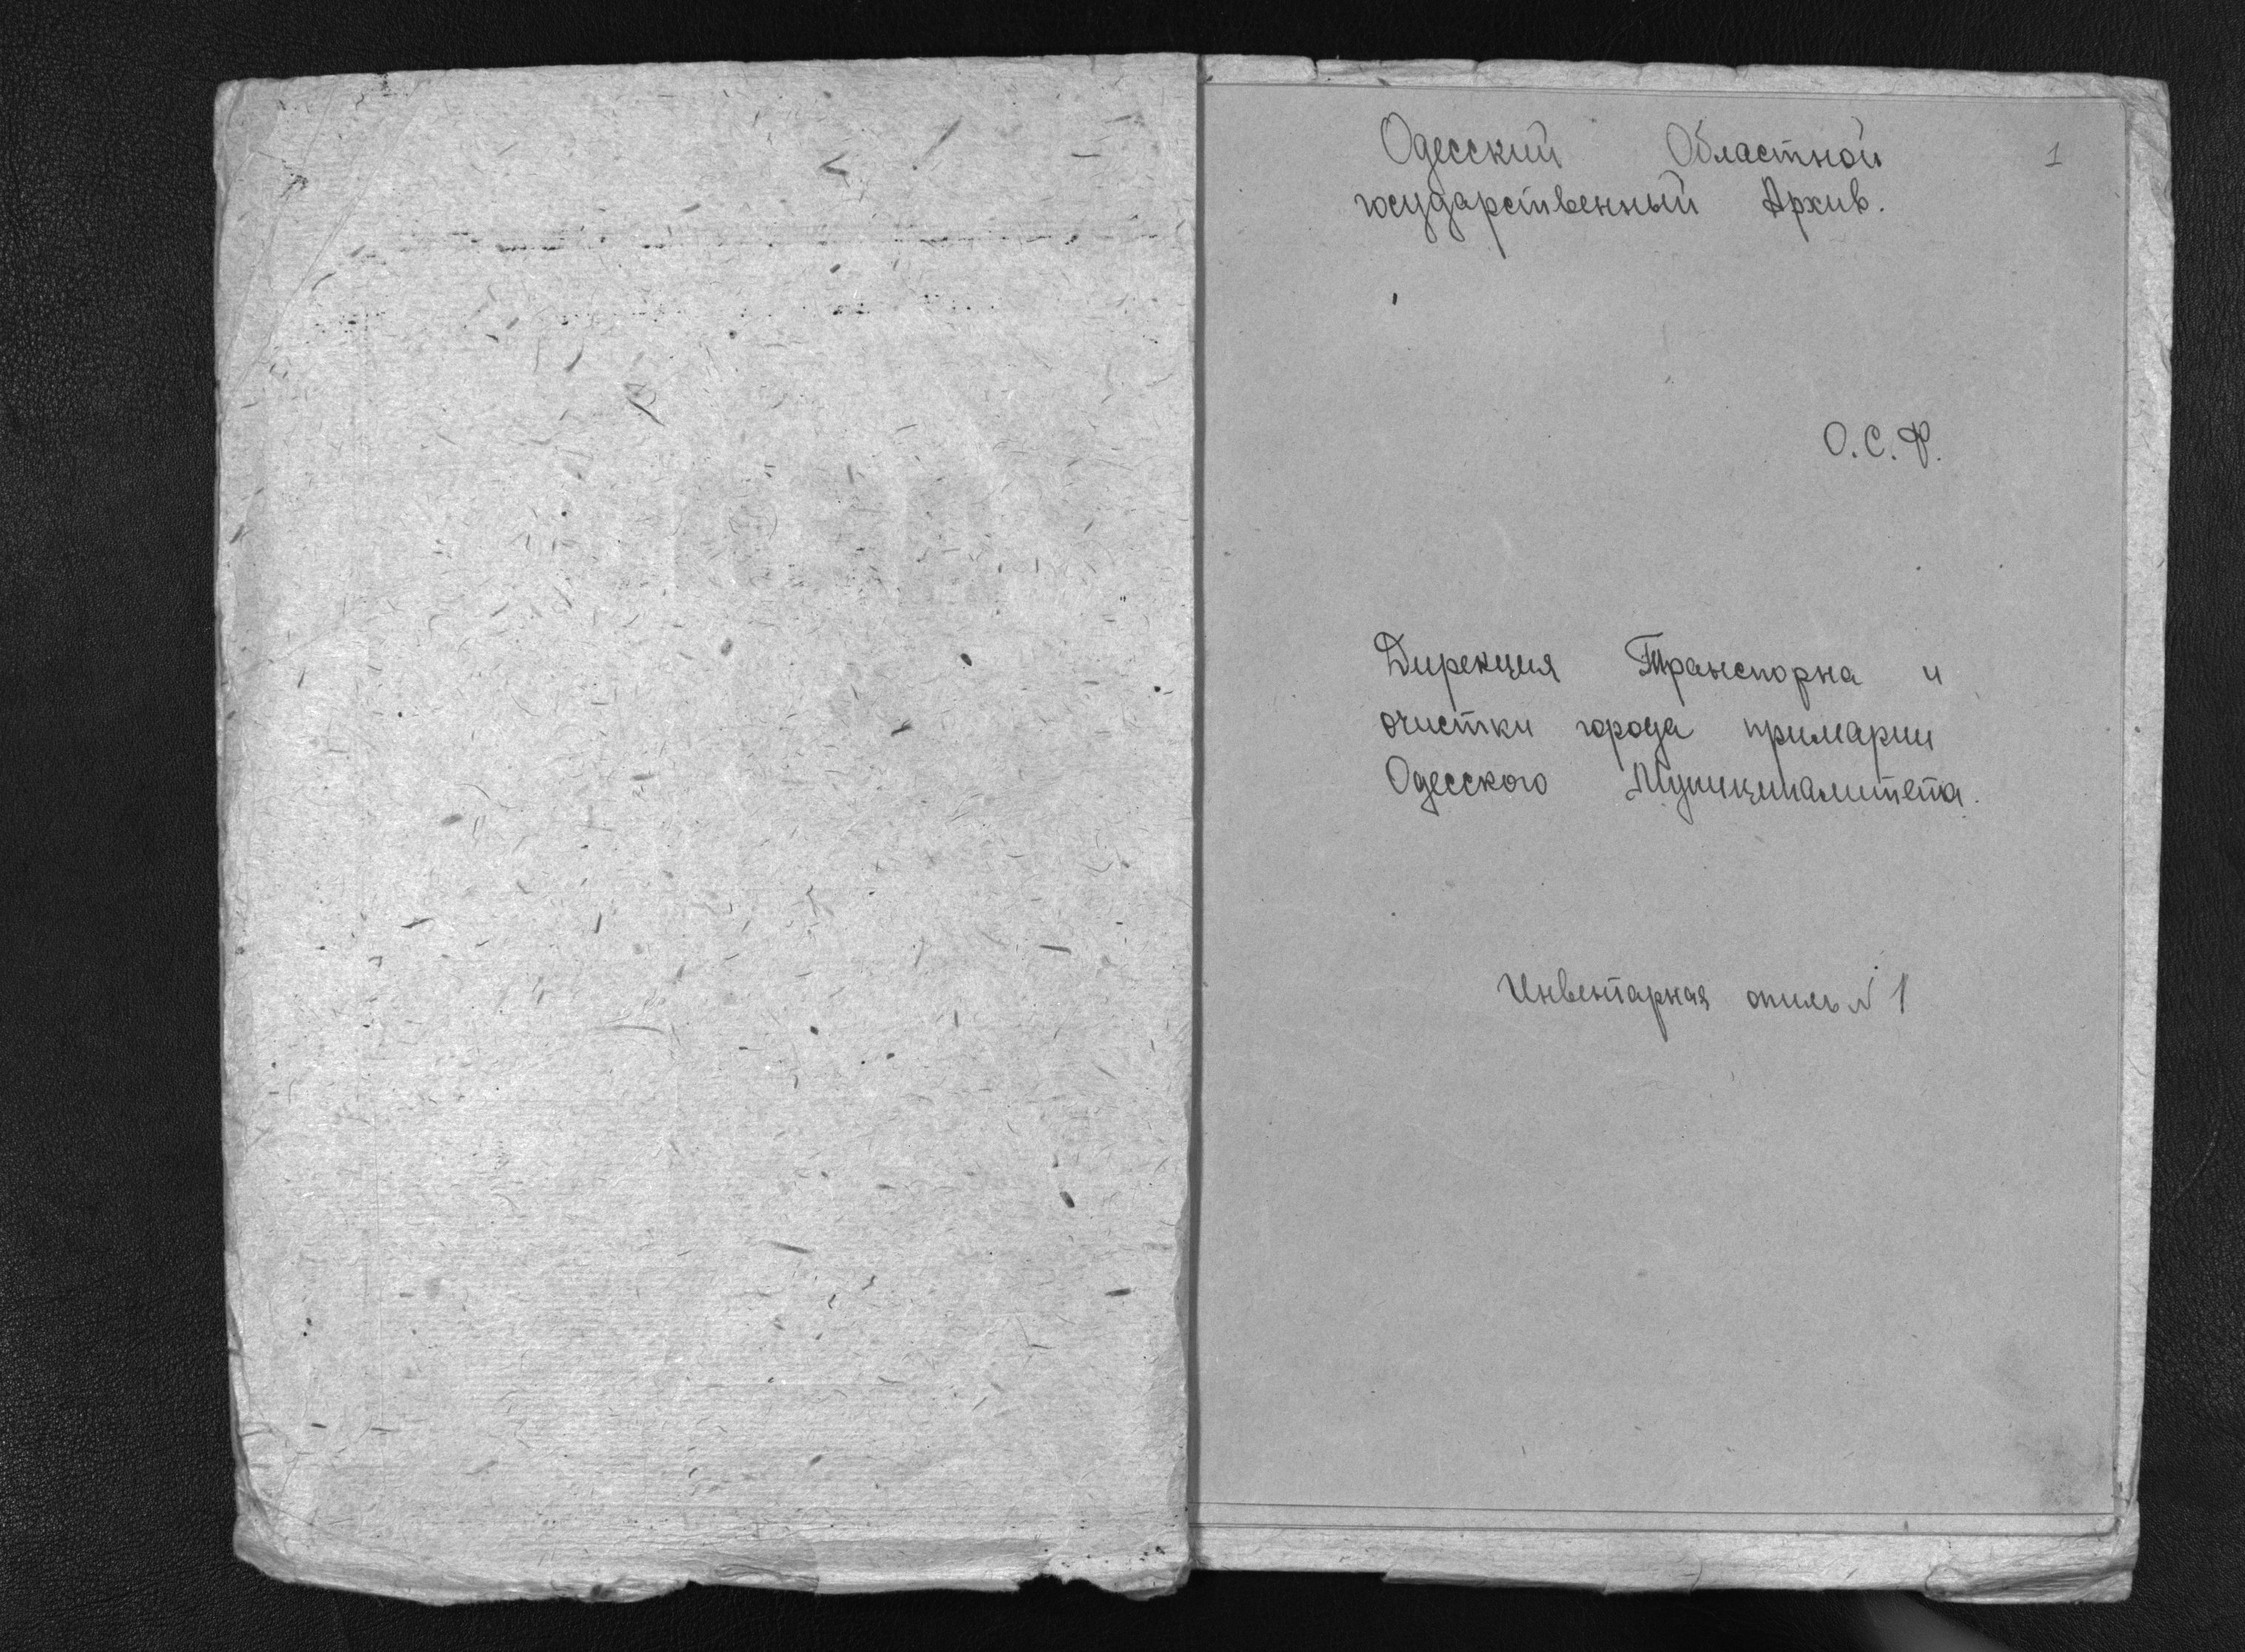 1
Одесский Областной
государственный Архив.
О.С.Ф.
Дирекция Транспорна и
очистки города примарии
Одесского Муниципалитета.
Инвентарная опись № 1